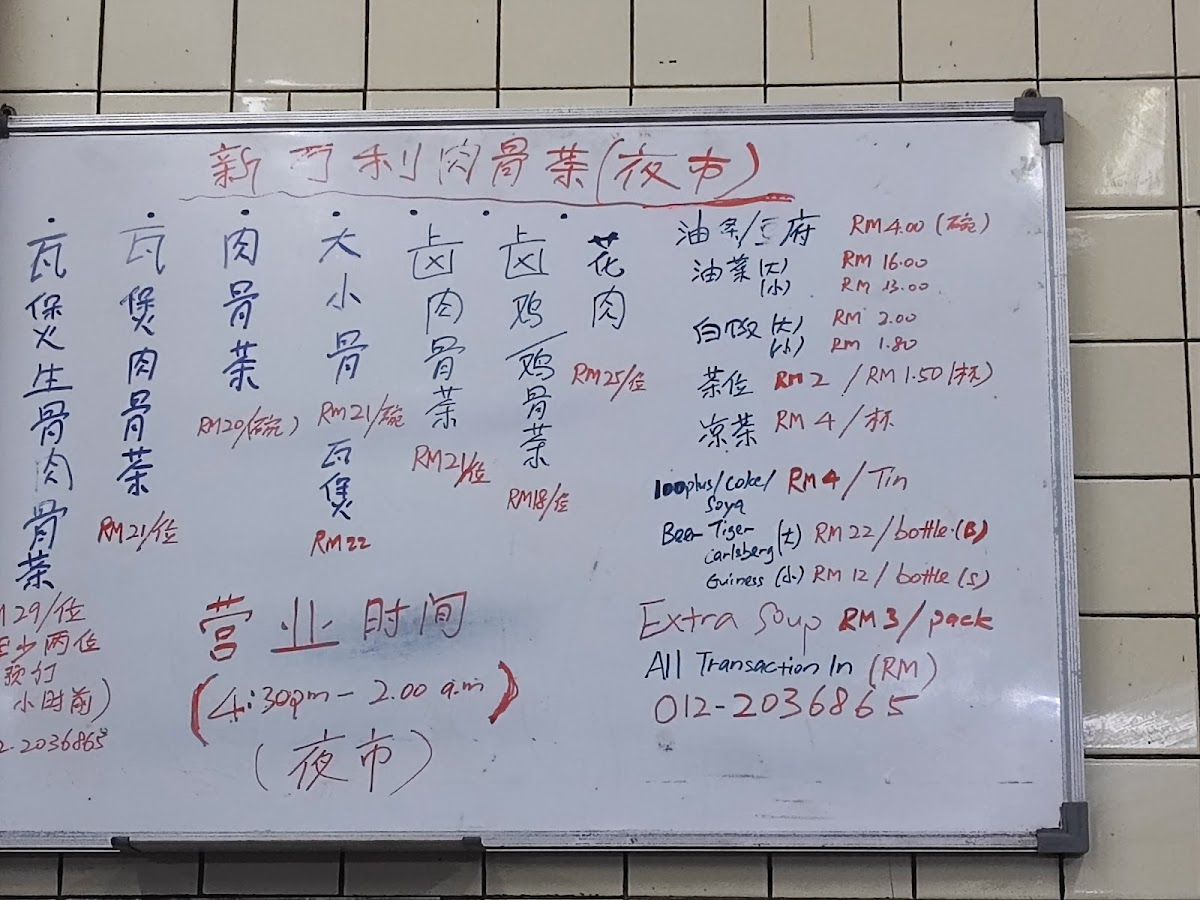 新可利肉骨茶(夜市)
瓦煲生骨肉骨茶
29/位
至少两位
预订
小时前)
2-2036865
瓦煲肉骨茶
RM21/位
肉骨茶
RM20/(碗)
大小骨
RM21/碗
瓦煲
RM22
卤肉骨茶
RM21/位
卤鸡/鸡骨茶
RM18/位
花肉
RM25/位
油条/豆府 RM4.00 (碗)
油菜 (大) RM 16.00
(小) RM 13.00
白饭 (大) RM 2.00
(小) RM 1.80
茶位 RM2 / RM1.50(杯)
凉茶 RM4/杯
100plus/coke/ RM4/Tin
Soya
Beer Tiger
Carlsberg (大) RM22/bottle.(B)
Guiness (小) RM12/bottle(S)
Extra Soup RM3/pack
All Transaction In (RM)
012-2036865
营业时间
(4:30pm-2.00 a.m)
(夜市)